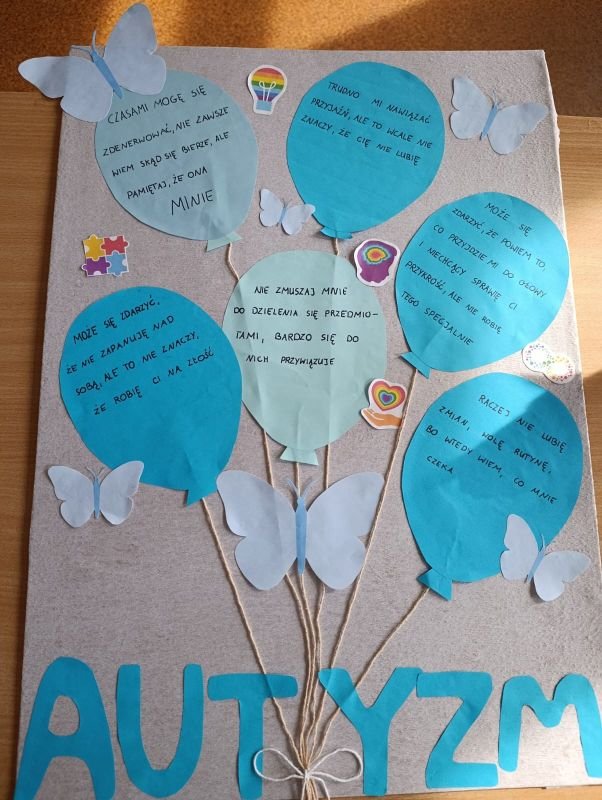 CZASAMI MOGĘ SIĘ
ZDENERWOWAĆ, NIE ZAWSZE
WIEM SKĄD SIĘ BIERZE, ALE
PAMIĘTAJ, ŻE ONA
MINIE
TRUDNO MI NAWIĄZAĆ
PRZYJAŹŃ, ALE TO WCALE NIE
ZNACZY, ŻE CIĘ NIE LUBIĘ
MOŻE SIĘ
ZDARZYĆ, ŻE POWIEM TO,
CO PRZYJDZIE MI DO GŁOWY
I NIECHCĄCY SPRAWIĘ CI
PRZYKROŚĆ, ALE NIE ROBIĘ
TEGO SPECJALNIE
NIE ZMUSZAJ MNIE
DO DZIELENIA SIĘ PRZEDMIO-
TAMI, BARDZO SIĘ DO
NICH PRZYWIĄZUJĘ
MOŻE SIĘ ZDARZYĆ,
ŻE NIE ZAPANUJĘ NAD
SOBĄ, ALE TO NIE ZNACZY,
ŻE ROBIĘ CI NA ZŁOŚĆ
RACZEJ NIE LUBIĘ
ZMIAN, WOLĘ RUTYNĘ,
BO WTEDY WIEM, CO MNIE
CZEKA
AUTYZM